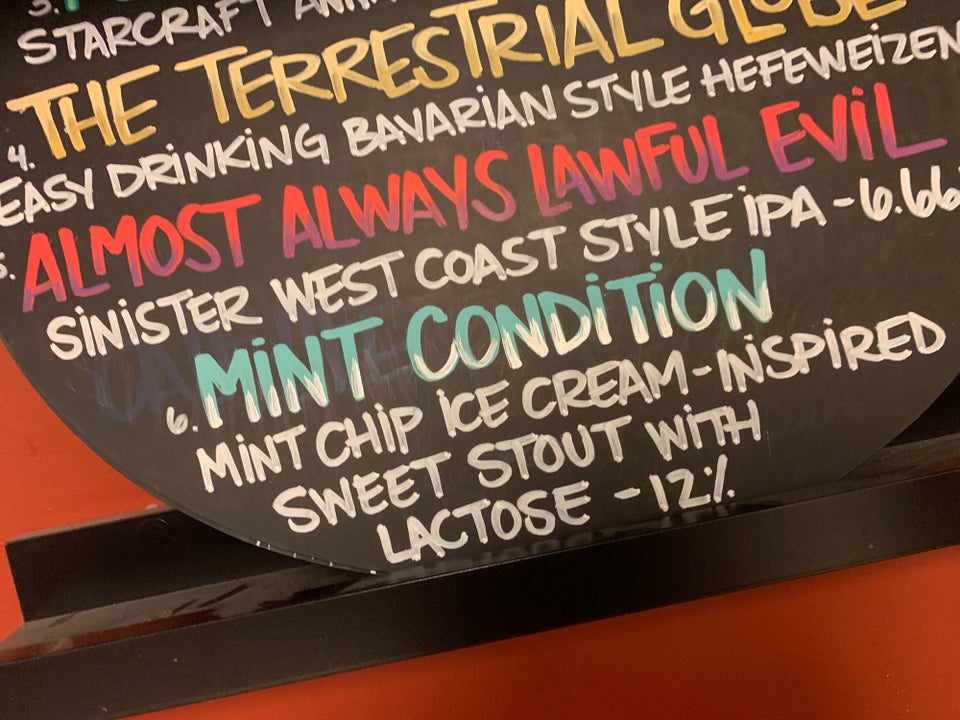 3.
STARCRAFT
THE TERRESTRIAL GLOBE
4.
EASY DRINKING BAVARIAN STYLE HEFEWEIZEN
ALMOST ALWAYS LAWFUL EVIL
5.
SINISTER WEST COAST STYLE IPA - 6.66
MINT CONDITION
6.
MINT CHIP ICE CREAM - INSPIRED
SWEET STOUT WITH
LACTOSE - 12%